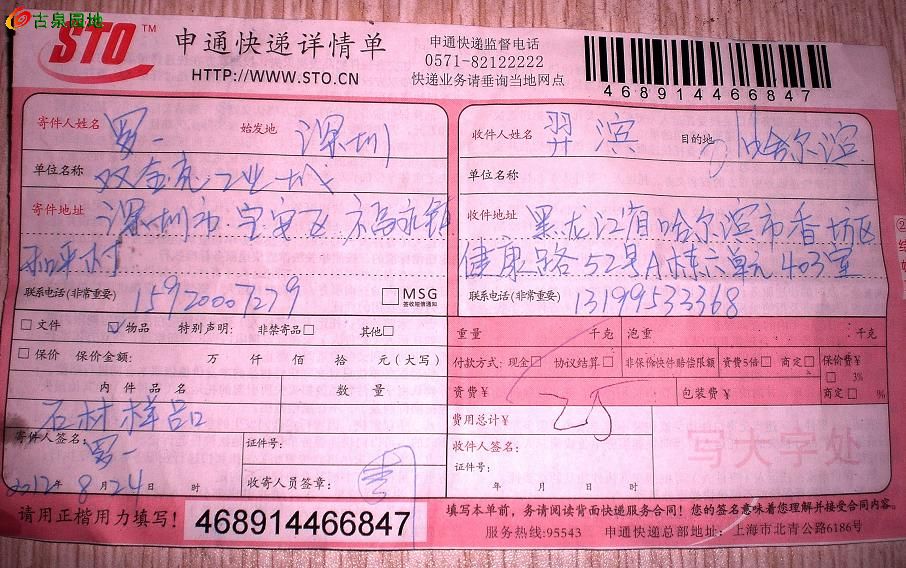 古泉园地
STO™ 申通快递详情单
HTTP://WWW.STO.CN
申通快递监督电话
0571-82122222
快递业务请垂询当地网点
468914466847
寄件人姓名 罗一 始发地 深圳
单位名称 双金亮工业城
寄件地址 深圳市宝安区福永镇
和平村
联系电话(非常重要) 15920007279 MSG
签收短信通知
收件人姓名 羿滨 目的地 哈尔滨
单位名称
收件地址 黑龙江省哈尔滨市香坊区
健康路52号A栋六单元403室
联系电话(非常重要) 13199533368
文件 物品 特别声明: 非禁寄品 其他
保价 保价金额: 万 仟 佰 拾 元(大写)
内件品名 数量
石材样品
寄件人签名: 罗一
2012年8月24日 时
证件号:
收寄人员签章:
重量 千克 泡重 千克
付款方式: 现金 协议结算 非保价快件赔偿限额 资费5倍 商定 保价费¥
3%
商定 %
资费¥ 包装费¥
费用总计¥
收件人签名:
证件号:
年 月 日 时
写大字处
请用正楷用力填写!
468914466847
填写本单前,务请阅读背面快递服务合同!您的签名意味着您理解并接受合同内容。
服务热线:95543 申通快递总部地址:上海市北青公路6186号